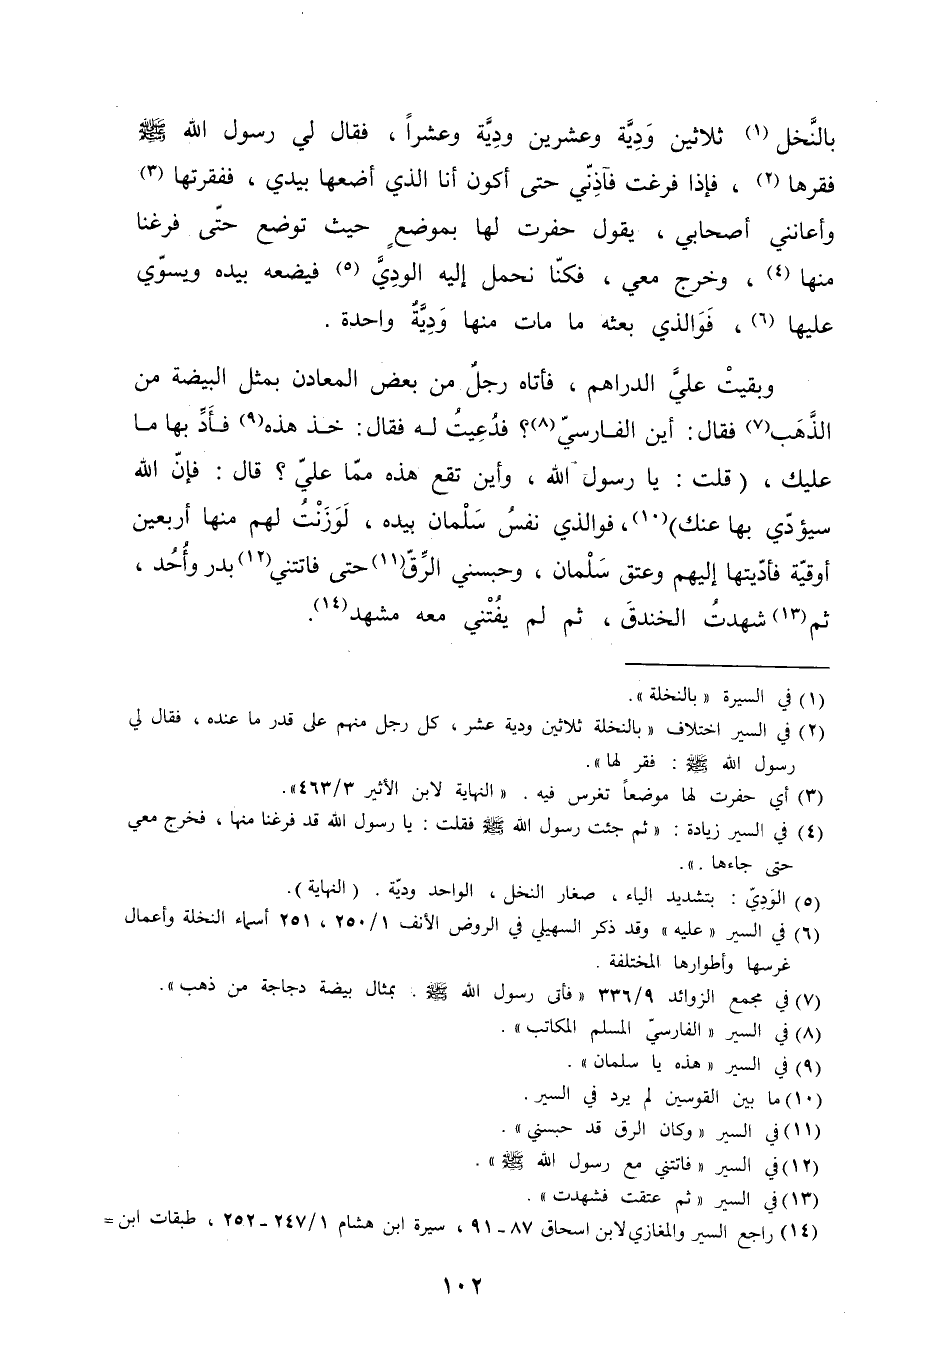 بالنَّخل (١) ثلاثين وَدِيَّة وعشرين ودِيَّة وعشراً ، فقال لي رسول الله ﷺ
فقرها (٢) ، فإذا فرغت فآذِنّي حتى أكون أنا الذي أضعها بيدي ، ففقرتها (٣)
وأعانني أصحابي ، يقول حفرت لها بموضعٍ حيث توضع حتّى فرغنا
منها (٤) ، وخرج معي ، فكنّا نحمل إليه الودِيَّ (٥) فيضعه بيده ويسوّي
عليها (٦) ، فَوَالذي بعثه ما مات منها وَدِيَّةٌ واحدة .
وبقيتْ عليَّ الدراهم ، فأتاه رجلٌ من بعض المعادن بمثل البيضة من
الذَّهَب(٧) فقال: أين الفارسيّ(٨)؟ فدُعِيتُ له فقال: خذ هذه(٩) فأَدِّ بها ما
عليك ، ( قلت : يا رسول الله ، وأين تقع هذه ممّا عليّ ؟ قال : فإنّ الله
سيؤدّي بها عنك)(١٠)، فوالذي نفسُ سَلْمان بيده ، لَوَزَنْتُ لهم منها أربعين
أوقيّة فأدّيتها إليهم وعتق سَلْمان ، وحبسني الرِّقّ(١١)حتى فاتتني(١٢)بدر وأُحُد ،
ثم(١٣)شهدتُ الخندقَ ، ثم لم يفُتْني معه مشهد(١٤).
(١) في السيرة « بالنخلة ».
(٢) في السير اختلاف « بالنخلة ثلاثين ودية عشر ، كل رجل منهم على قدر ما عنده ، فقال لي
رسول الله ﷺ : فقر لها ».
(٣) أي حفرت لها موضعاً تغرس فيه . « النهاية لابن الأثير ٤٦٣/٣».
(٤) في السير زيادة : « ثم جئت رسول الله ﷺ فقلت : يا رسول الله قد فرغنا منها ، فخرج معي
حتى جاءها . ».
(٥) الوَدِيّ : بتشديد الياء ، صغار النخل ، الواحد وديّة . ( النهاية ).
(٦) في السير « عليه » وقد ذكر السهيلي في الروض الأنف ٢٥٠/١ ، ٢٥١ أسماء النخلة وأعمال
غرسها وأطوارها المختلفة .
(٧) في مجمع الزوائد ٣٣٦/٩ « فأتى رسول الله ﷺ . بمثال بيضة دجاجة من ذهب ».
(٨) في السير « الفارسيّ المسلم المكاتب » .
(٩) في السير « هذه يا سلمان » .
(١٠) ما بين القوسين لم يرد في السير .
(١١) في السير « وكان الرق قد حبسني » .
(١٢) في السير « فاتتني مع رسول الله ﷺ » .
(١٣) في السير « ثم عتقت فشهدت » .
(١٤) راجع السير والمغازي لابن اسحاق ٨٧ ـ ٩١ ، سيرة ابن هشام ٢٤٧/١ ـ ٢٥٢ ، طبقات ابن =
١٠٢